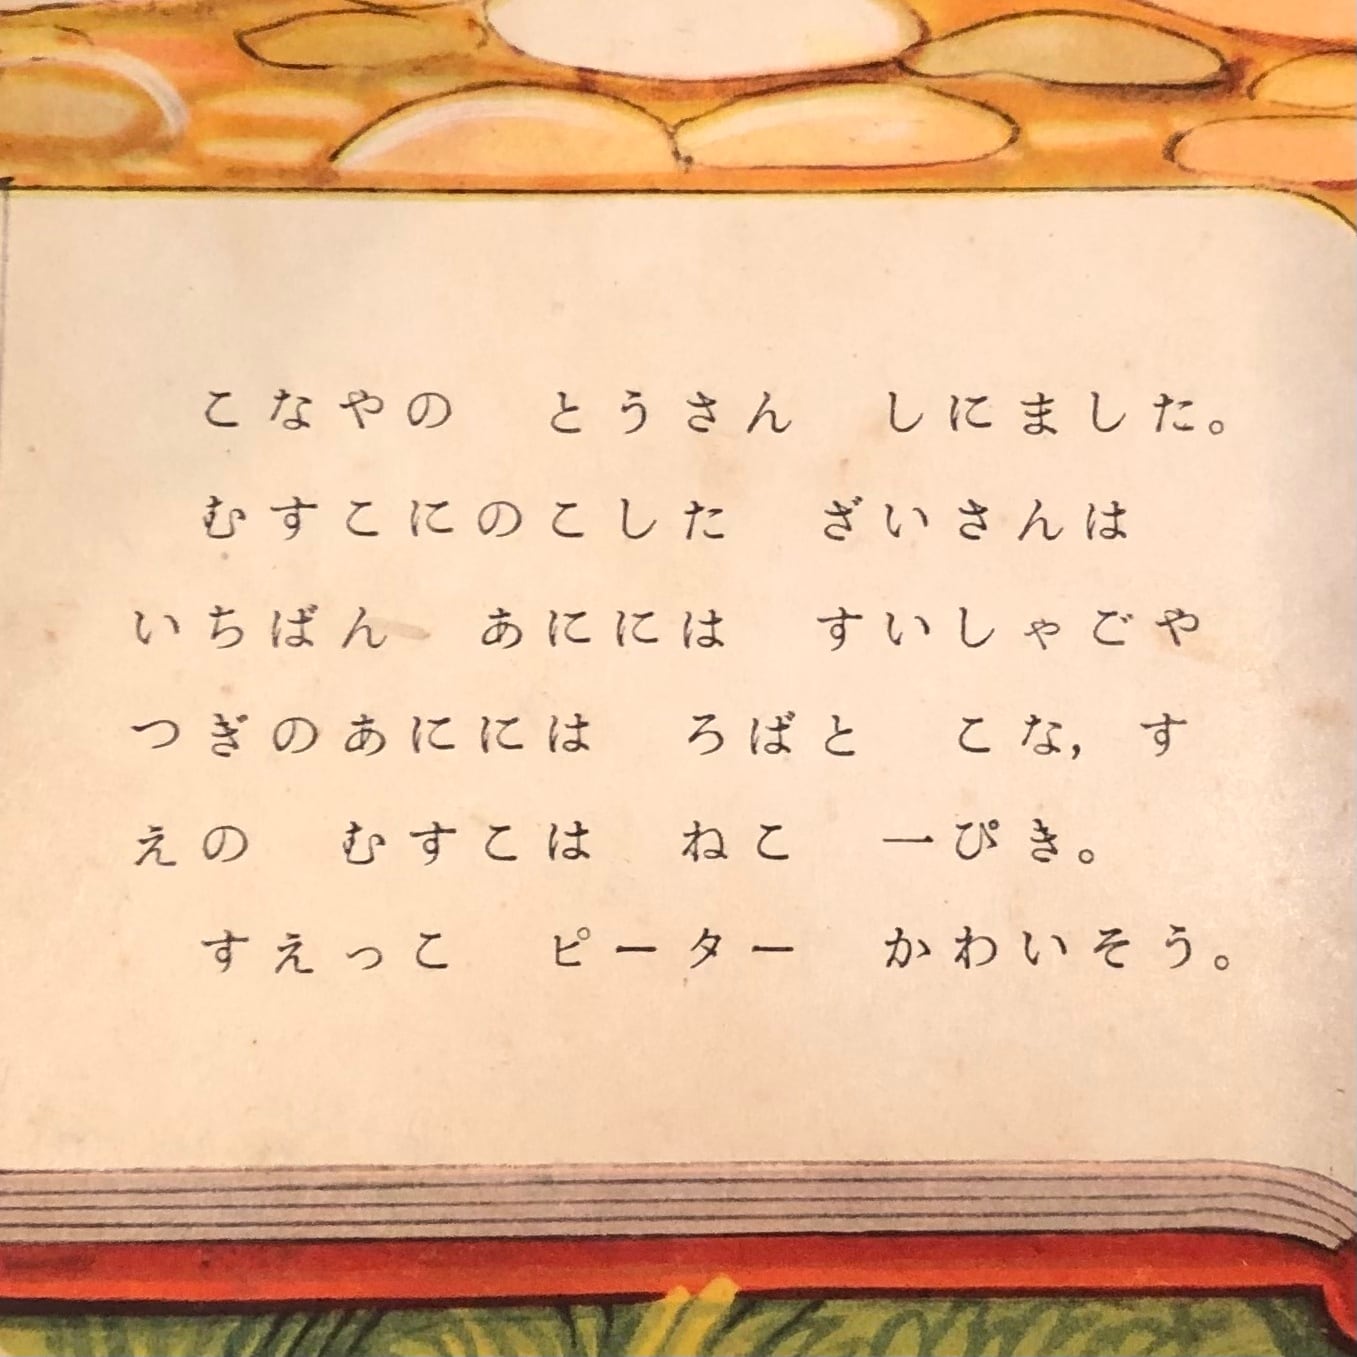 こなやの　とうさん　しにました。
むすこにのこした　ざいさんは
いちばん　あにには　すいしゃごや
つぎのあにには　ろばと　こな，す
えの　むすこは　ねこ　一ぴき。
すえっこ　ピーター　かわいそう。